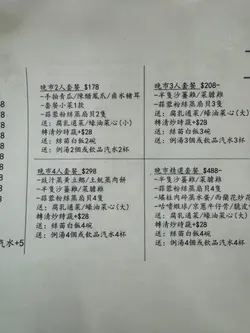 晚市2人套餐 $178
-手拍青瓜/陳醋鳳爪/鹵水豬耳
-套餐小菜1款
-蒜蓉粉絲蒸扇貝2隻
送: 腐乳通菜/蠔油菜心(小)
轉清炒時蔬+$28
送: 絲苗白飯2碗
送: 例湯2個或飲品汽水2杯
晚市3人套餐 $208-
-半隻沙薑雞/菜膽雞
-蒜蓉粉絲蒸扇貝3隻
送: 腐乳通菜/蠔油菜心(大)
轉清炒時蔬+$28
送: 絲苗白飯3碗
送: 例湯3個或飲品汽水3杯
晚市4人套餐 $298
-豉汁蒸黃立鯧/土魷蒸肉餅
-半隻沙薑雞/菜膽雞
-蒜蓉粉絲蒸扇貝4隻
送: 腐乳通菜/蠔油菜心(大)
轉清炒時蔬+$28
送: 絲苗白飯4碗
送: 例湯4個或飲品汽水4杯
晚市精選套餐 $488-
-半隻沙薑雞/菜膽雞
送: 腐乳通菜/蠔油菜心(大)
轉清炒時蔬+$28
送: 絲苗白飯4碗
送: 例湯4個或飲品汽水4杯
汽水+5